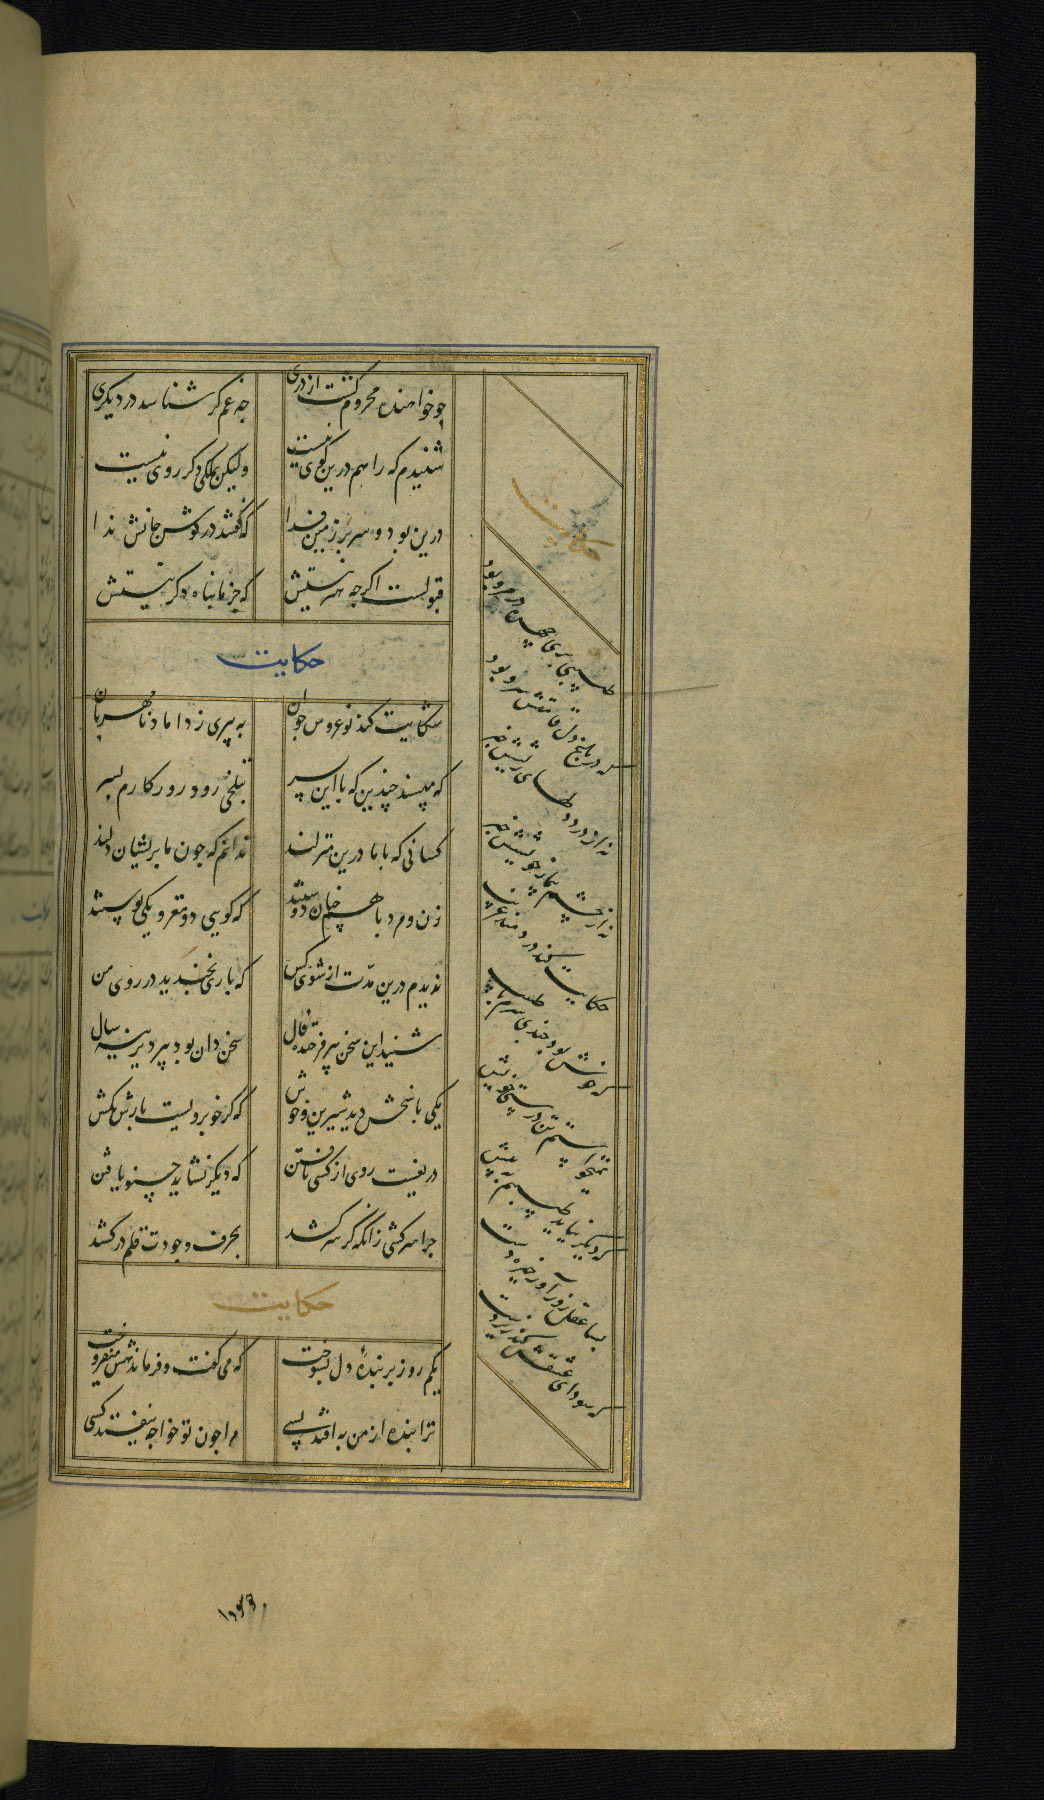 چو خواهنده محروم گشت از دری چه غم گر شناسد در دیگری
شنیدم که راهم درین کوی نیست ولیکن بملکی دگر روی نیست
درین بود و سر بر زمین فدا که گفتند در گوش جانش ندا
قبولست اگرچه هنر نیستش که جز ما پناه دگر نیستش
حکایت
شکایت کند نوعروس جوان به پیری ز داماد نامهربان
که مپسند چندین که با این پسر بتلخی رود روزکارم بسر
کسانی که با ما درین منزلند ندانم که چون ما پریشان دلند
زن و مرد با هم چنان دوستند که گویی دو مغز و یکی پوستند
ندیدم درین مدّت از شوی کس که باری بخندید در روی من
شنید این سخن پیر فرخنده فال سخن دان بود پیر دیرینه سال
یکی پاسخش دید شیرین و خوش که گر خوبرویست بارش بکش
دریغست روی از کسی تافتن که دیگر نشاید چنو یافتن
چرا سرکشی زانکه گر سر کشد بحرف وجودت قلم در کشد
حکایت
یکم روز بر بندهٔ دل بسوخت که می گفت و فرماندهش میفروخت
ترا بنده از من به افتد بسی مرا چون تو خواجه نیفتد کسی
حکایت
طبیبی پری چهره در مرو بود
که در باغ دل قامتش سرو بود
نه از درد دلهای ریشش خبر
نه از چشم بیمار خویشش خبر
حکایت کند دردمندی غریب
که خوش بود چندی سرم با طبیب
نمیخواستم تندرستی خویش
که دیگر نیاید طبیبم به پیش
بسا عقل زورآور چیره دست
که سودای عشقش کند زیردست